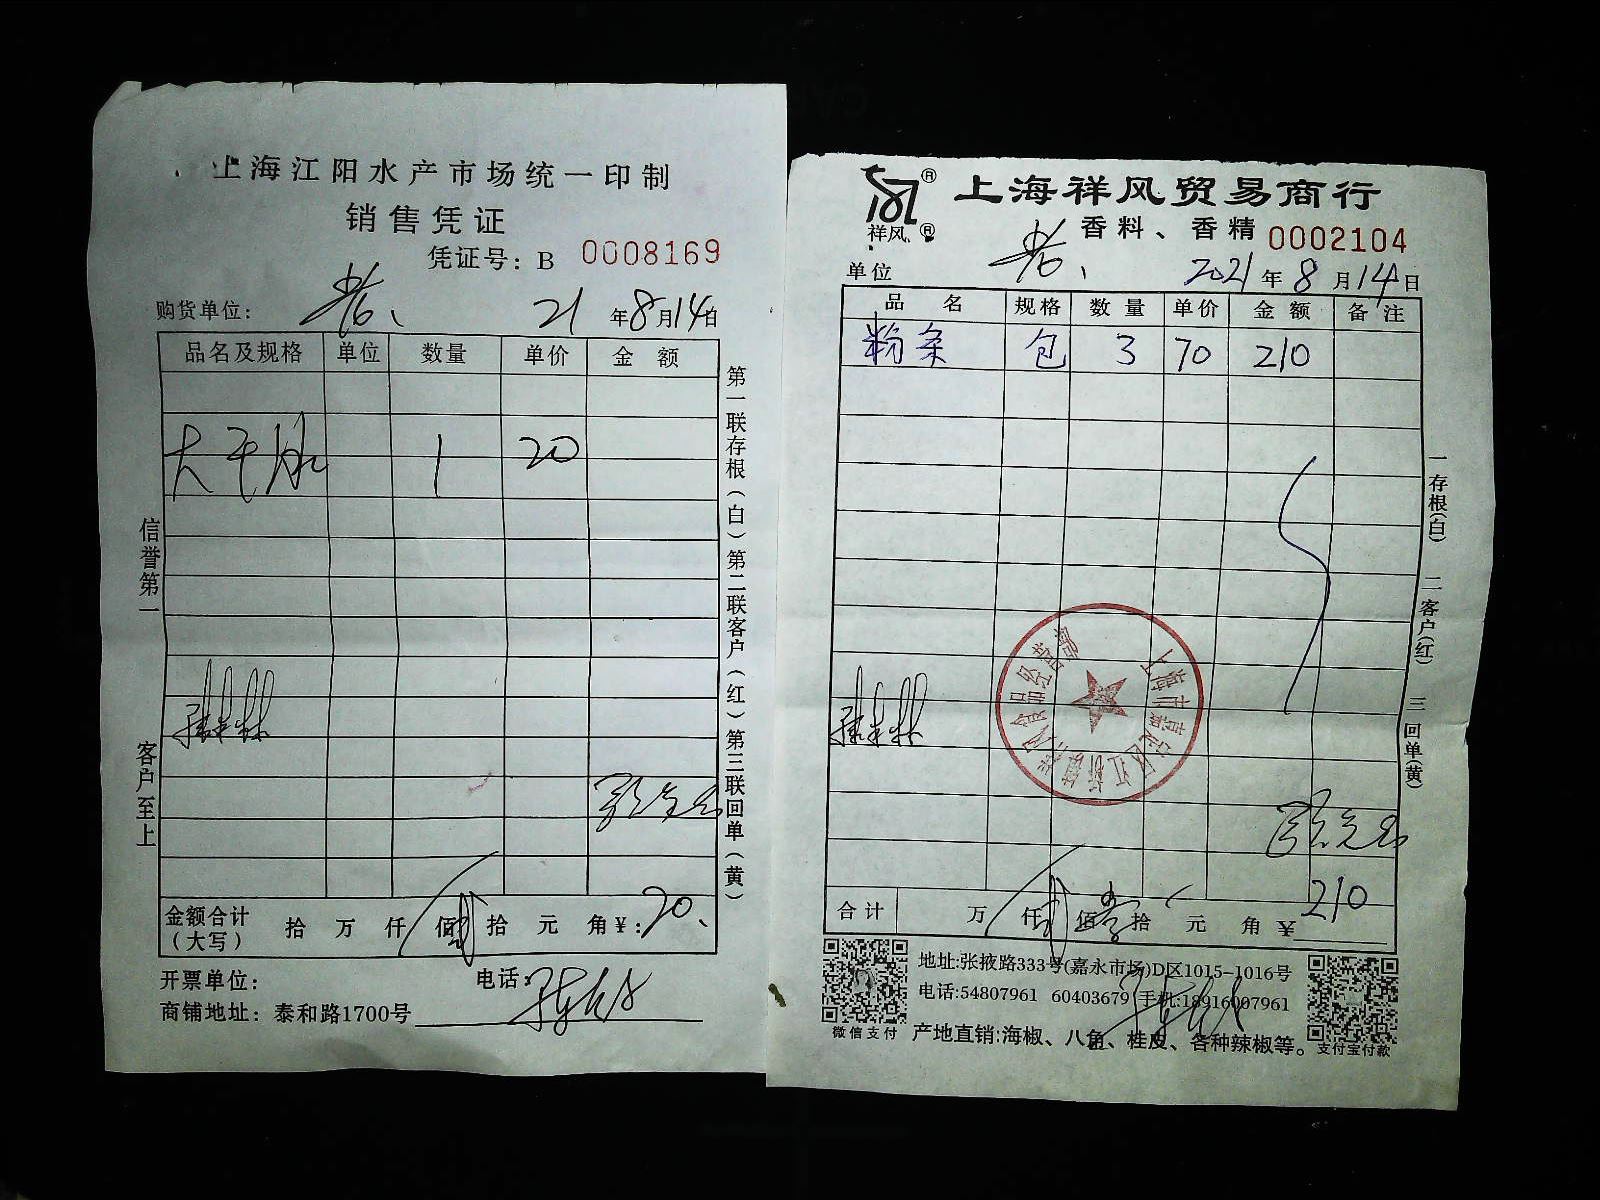 上海江阳水产市场统一印制
销售凭证
凭证号：B 0008169
购货单位： 21 年 8 月 14 日
品名及规格 单位 数量 单价 金 额
大干水 1 20
信誉第一
客户至上
第一联存根（白）第二联客户（红）第三联回单（黄）
金额合计（大写） 拾 万 仟 佰 贰 拾 元 角 ¥：20.
开票单位： 电话：
商铺地址：泰和路1700号
祥风 ® ®
上海祥风贸易商行
香料、香精 0002104
单位 2021 年 8 月 14 日
品 名 规格 数 量 单价 金 额 备 注
粉条 包 3 70 210
一存根(白) 二客户(红) 三回单(黄)
合计 万 仟 贰 佰 壹 拾 元 角 ¥ 210
地址:张掖路333号(嘉永市场)D区1015-1016号
电话:54807961 60403679 手机:18916007961
产地直销:海椒、八角、桂皮、各种辣椒等。
微信支付
支付宝付款